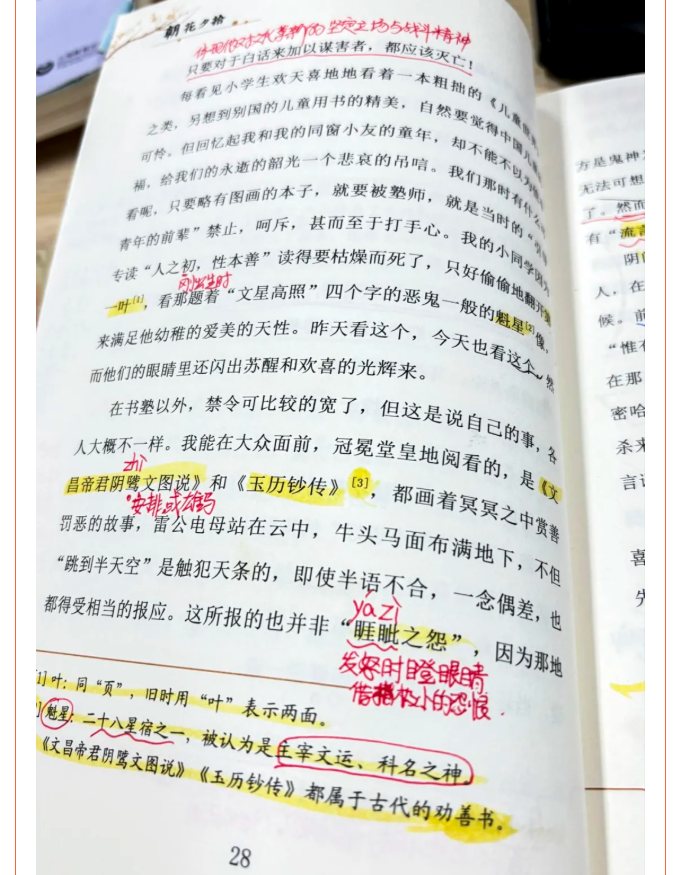 朝花夕拾
体现作对文化革新的坚定立场与战斗精神
只要对于白话来加以谋害者，都应该灭亡！
每看见小学生欢天喜地地看着一本粗拙的《儿童世界
之类，另想到别国的儿童用书的精美，自然要觉得中国儿童
可怜。但回忆起我和我的同窗小友的童年，却不能不以为
福，给我们的永逝的韶光一个悲哀的吊唁。我们那时有什么
看呢，只要略有图画的本子，就要被塾师，就是当时的“引导
青年的前辈”禁止，呵斥，甚而至于打手心。我的小同学因为
专读“人之初，性本善”读得要枯燥而死了，只好偷偷地翻开
刚出生时
一叶[1]，看那题着“文星高照”四个字的恶鬼一般的魁星[2]像，
来满足他幼稚的爱美的天性。昨天看这个，今天也看这个，然
而他们的眼睛里还闪出苏醒和欢喜的光辉来。
在书塾以外，禁令可比较的宽了，但这是说自己的事，各
人大概不一样。我能在大众面前，冠冕堂皇地阅看的，是《文
zhì
昌帝君阴骘文图说》和《玉历钞传》[3]，都画着冥冥之中赏善
安排或雄马
罚恶的故事，雷公电母站在云中，牛头马面布满地下，不但
“跳到半天空”是触犯天条的，即使半语不合，一念偶差，也
都得受相当的报应。这所报的也并非“睚眦之怨”，因为那地
yá zì
发怒时瞪眼睛
借指极小的怨恨
[1]叶：同“页”，旧时用“叶”表示两面。
魁星：二十八星宿之一，被认为是主宰文运、科名之神。
《文昌帝君阴骘文图说》《玉历钞传》都属于古代的劝善书。
28
方是鬼神
无法可想
了。然而
有“流言
阴
人，在
候。前
“惟有
在那
密哈
杀来
言
喜
先